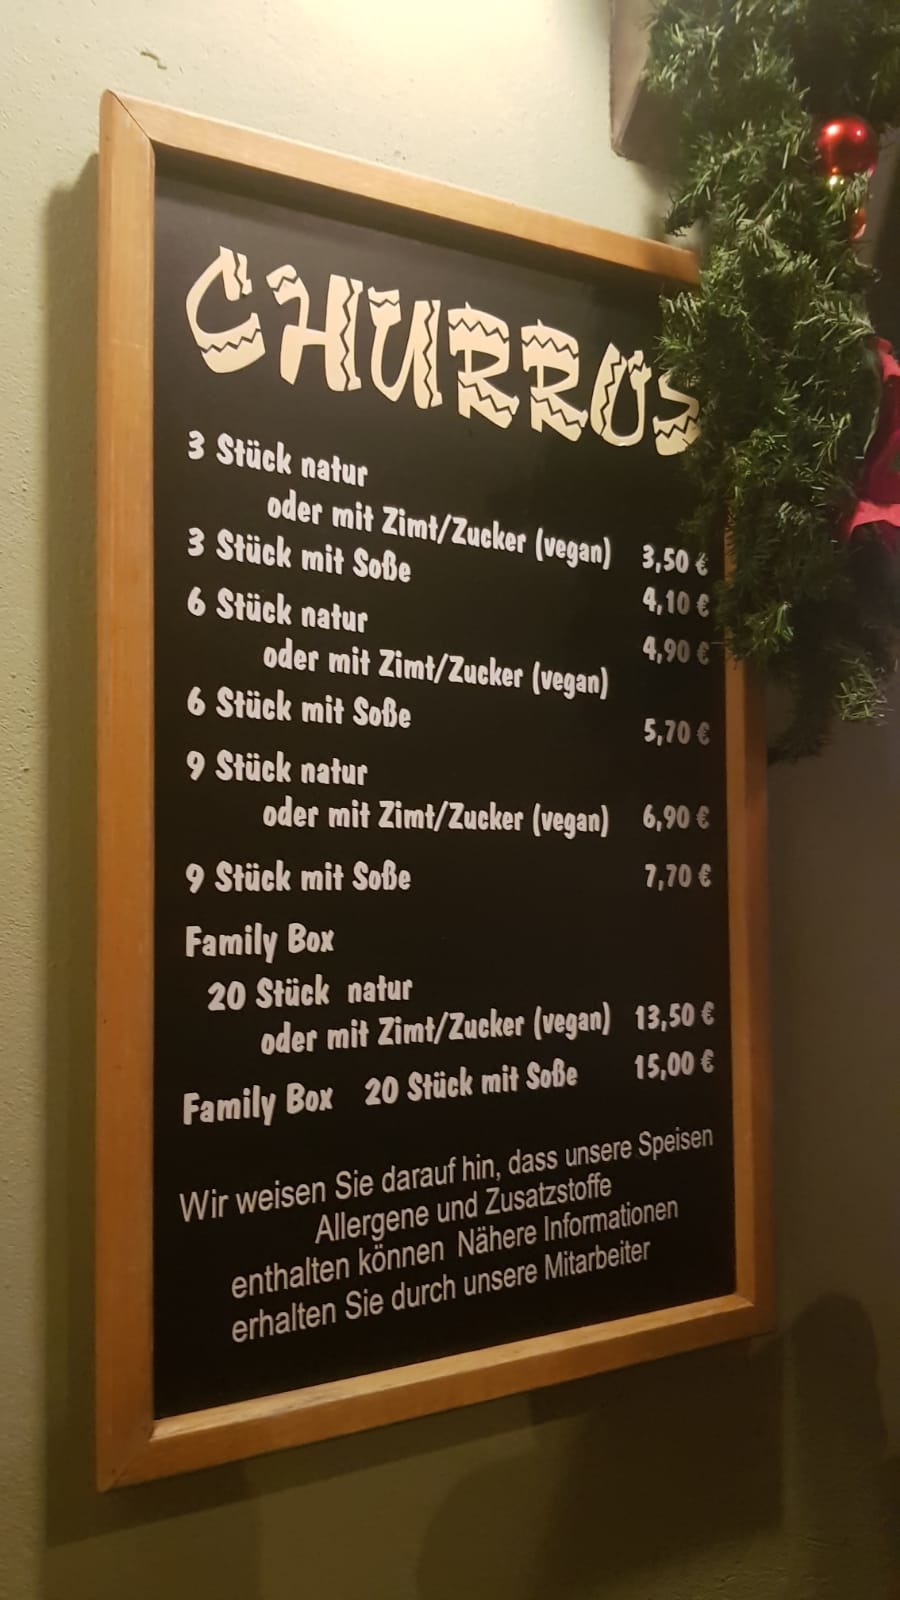 CHURROS
3 Stück natur
oder mit Zimt/Zucker (vegan) 3,50 €
3 Stück mit Soße 4,10 €
6 Stück natur 4,90 €
oder mit Zimt/Zucker (vegan)
6 Stück mit Soße 5,70 €
9 Stück natur
oder mit Zimt/Zucker (vegan) 6,90 €
9 Stück mit Soße 7,70 €
Family Box
20 Stück natur
oder mit Zimt/Zucker (vegan) 13,50 €
Family Box 20 Stück mit Soße 15,00 €
Wir weisen Sie darauf hin, dass unsere Speisen
Allergene und Zusatzstoffe
enthalten können Nähere Informationen
erhalten Sie durch unsere Mitarbeiter